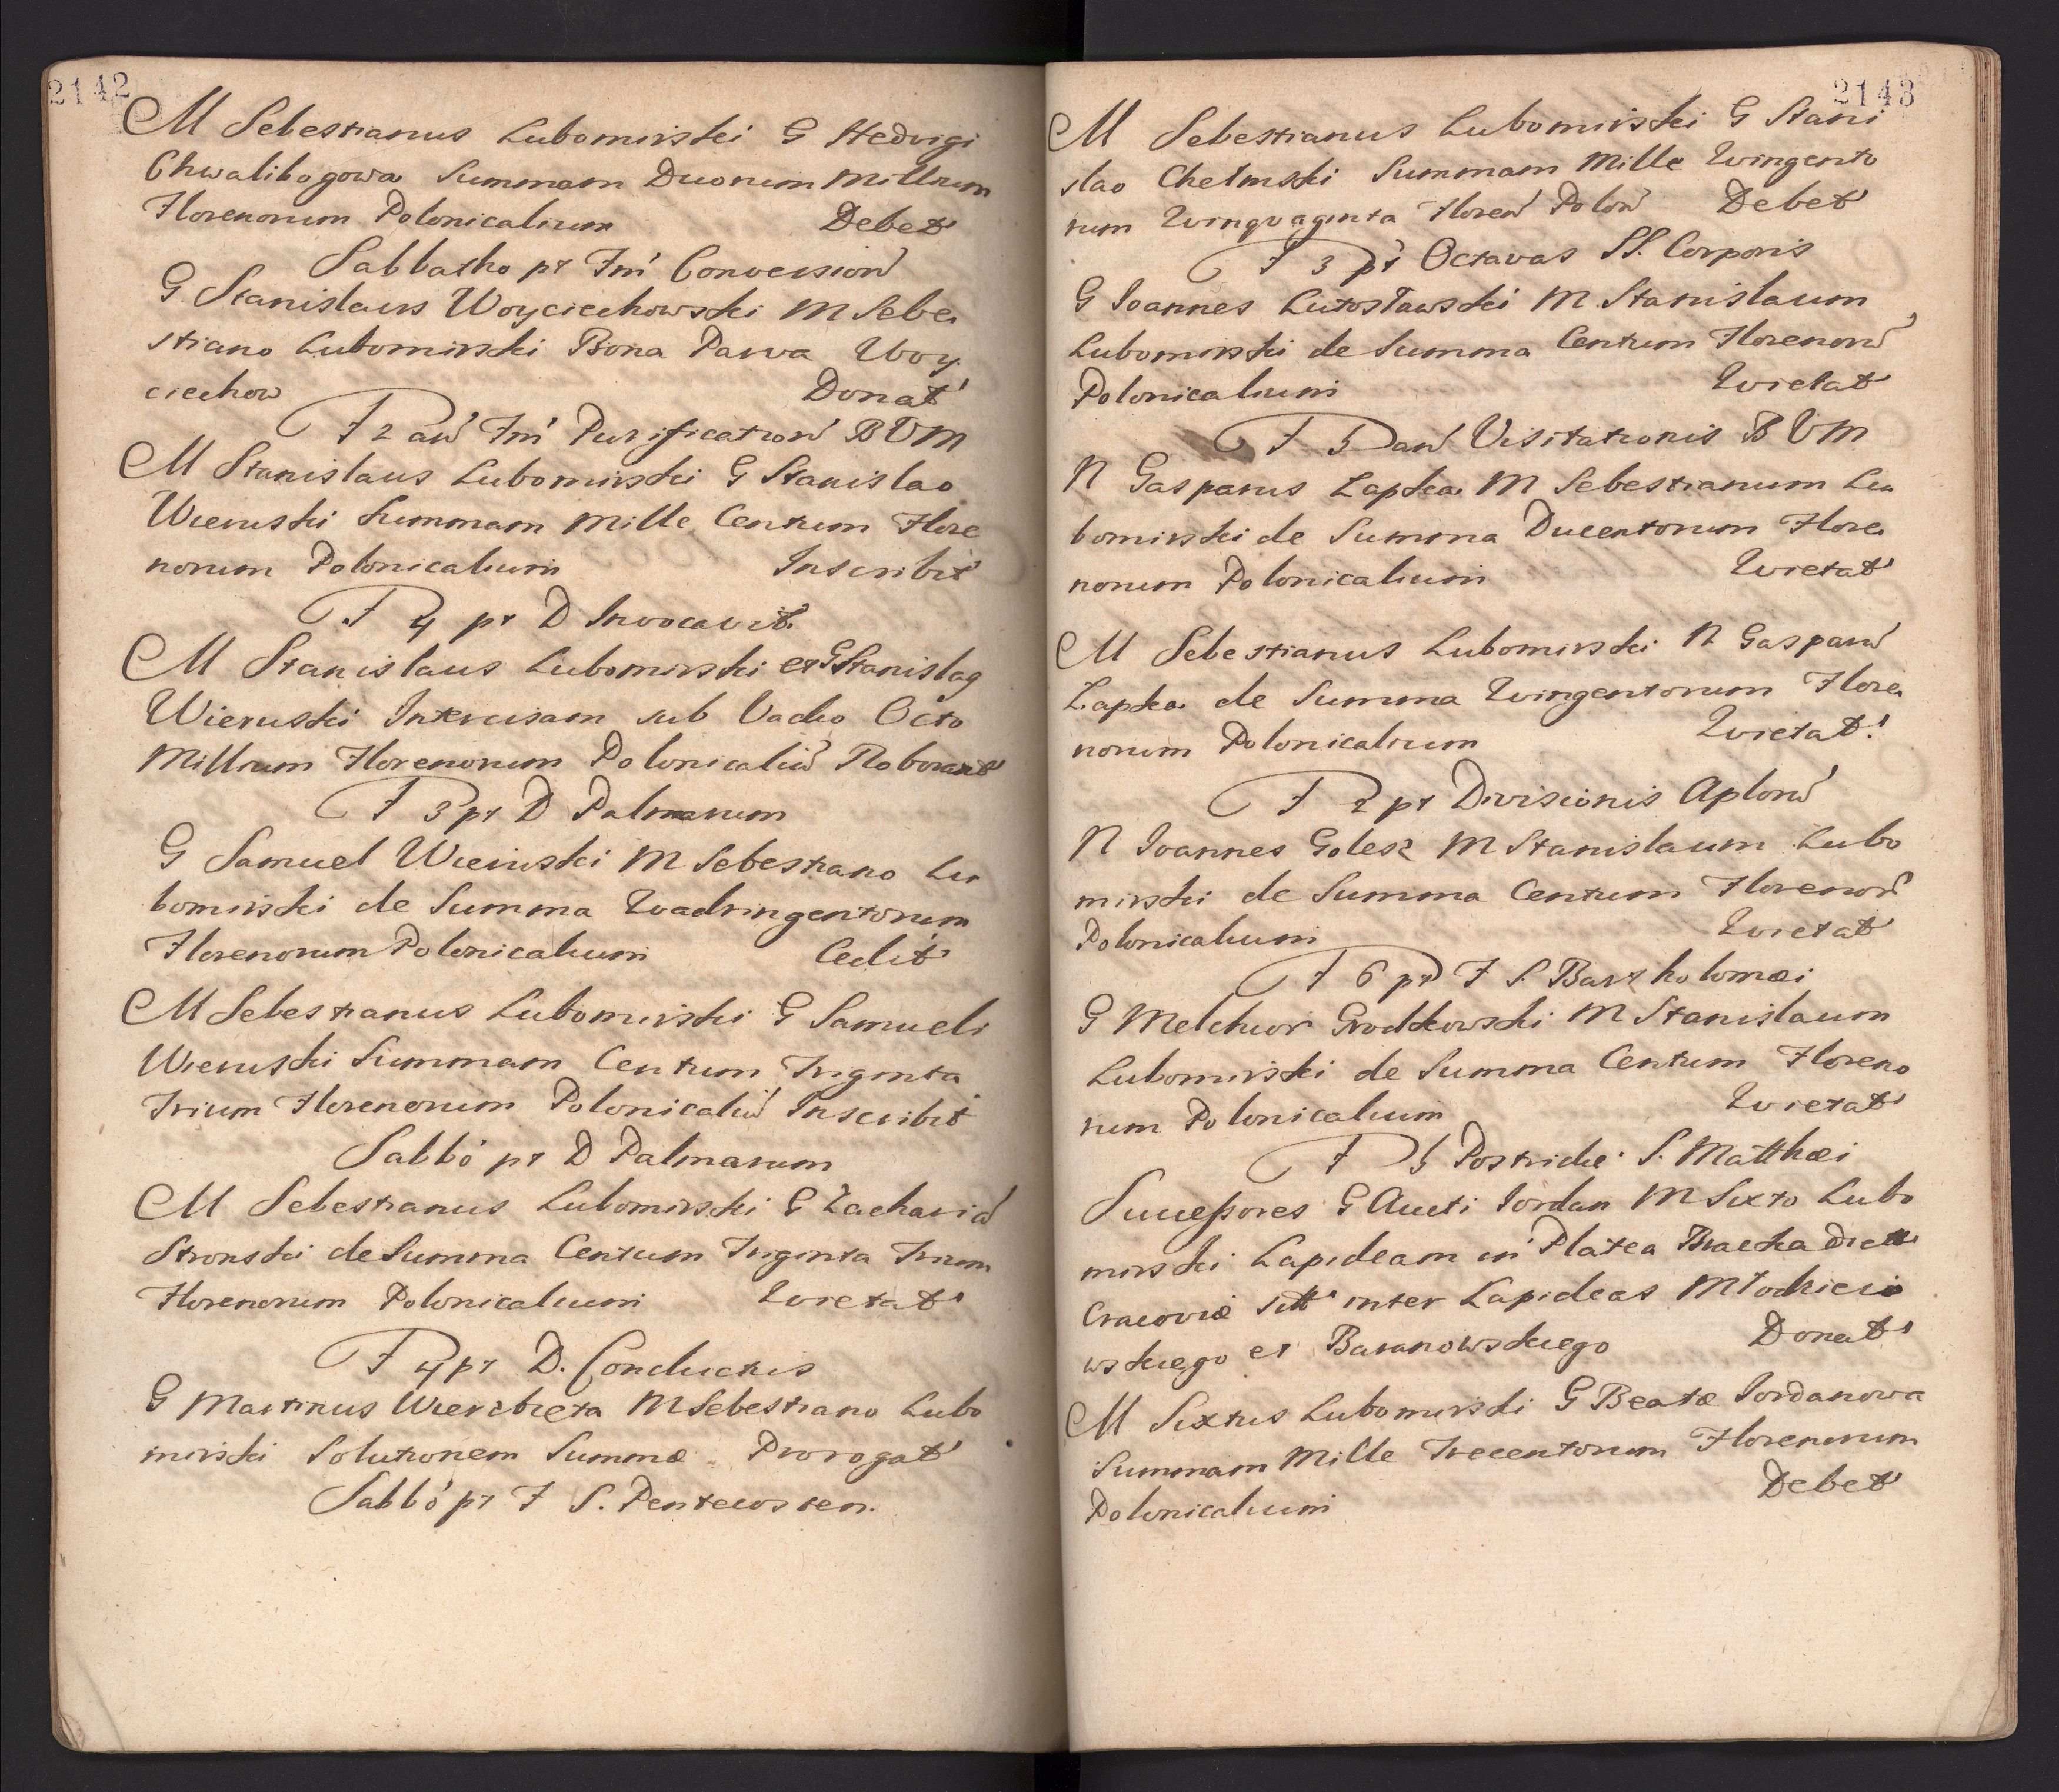 2142
M Sebestianus Lubomirski G Hedvigi
Chwalibogowa Summam Duorum Millium
Florenorum Polonicalium Debet
Sabbatho pt Fm Conversion
G Stanislaus Woyciechowski M Sebe
stiano Lubomirski Bona Parva Woy
ciechow Donat
F 2 an Fm Purification B V M
M Stanislaus Lubomirski G Stanislao
Wieruski Summam Mille Centum Flore
norum Polonicalium Inscribit
F 4 pt D Invocavit
M Stanislaus Lubomirski et G Stanislaq
Wieruski Intercisam sub Vadio Octo
Millium Florenorum Polonicaliu Roborant
F 3 pt D Palmarum
G Samuel Wieruski M Sebestiano Lu
bomirski de Summa Quadringentorum
Florenorum Polonicalium Cedit
M Sebestianus Lubomirski G Samueli
Wieruski Summam Centum Triginta
Trium Florenorum Polonicaliu Inscribit
Sabbo pt D Palmarum
M Sebestianus Lubomirski G Zacharia
Stronski de Summa Centum Triginta Trium
Florenorum Polonicalium Quietat
F 4 pt D. Conductus
G Martinus Wierzbieta M Sebestiano Lubo
mirski Solutionem Summæ Prorogat
Sabbo pt F S. Pentecosten.
2143
M Sebestianus Lubomirski G Stani
slao Chełmski Summam Mille Quingento
rum Quinquaginta Floren Polon Debet
F 3 pt Octavas SS. Corporis
G Ioannes Lutosławski M Stanislaum
Lubomirski de Summa Centum Florenor
Polonicalium Quietat
F 5 an Visitationis B V M
N Gasparus Łapka M Sebestianum Lu
bomirski de Summa Ducentorum Flore
norum Polonicalium Quietat
M Sebestianus Lubomirski N Gasparu
Łapka de Summa Quingentorum Flore
norum Polonicalium Quietat.
F 2 pt Divisionis Aplor
N Ioannes Golesz M Stanislaum Lubo
mirski de Summa Centum Florenor
Polonicalium Quietat
F 6 pt F S. Bartholomæi
G Melchior Grodkowski M Stanislaum
Lubomirski de Summa Centum Floreno
rum Polonicalium Quietat
F 5 Postridie S. Matthæi
Successores G Aucti Iordan M Sixto Lubo
mirski Lapideam in Platea Bracka dicta
Cracoviæ sitt inter Lapideas Młockiejo
wskiego et Baranowskiego Donat
M Sixtus Lubomirski G Beatæ Iordanowa
Summam Mille Trecentorum Florenorum
Polonicalium Debet